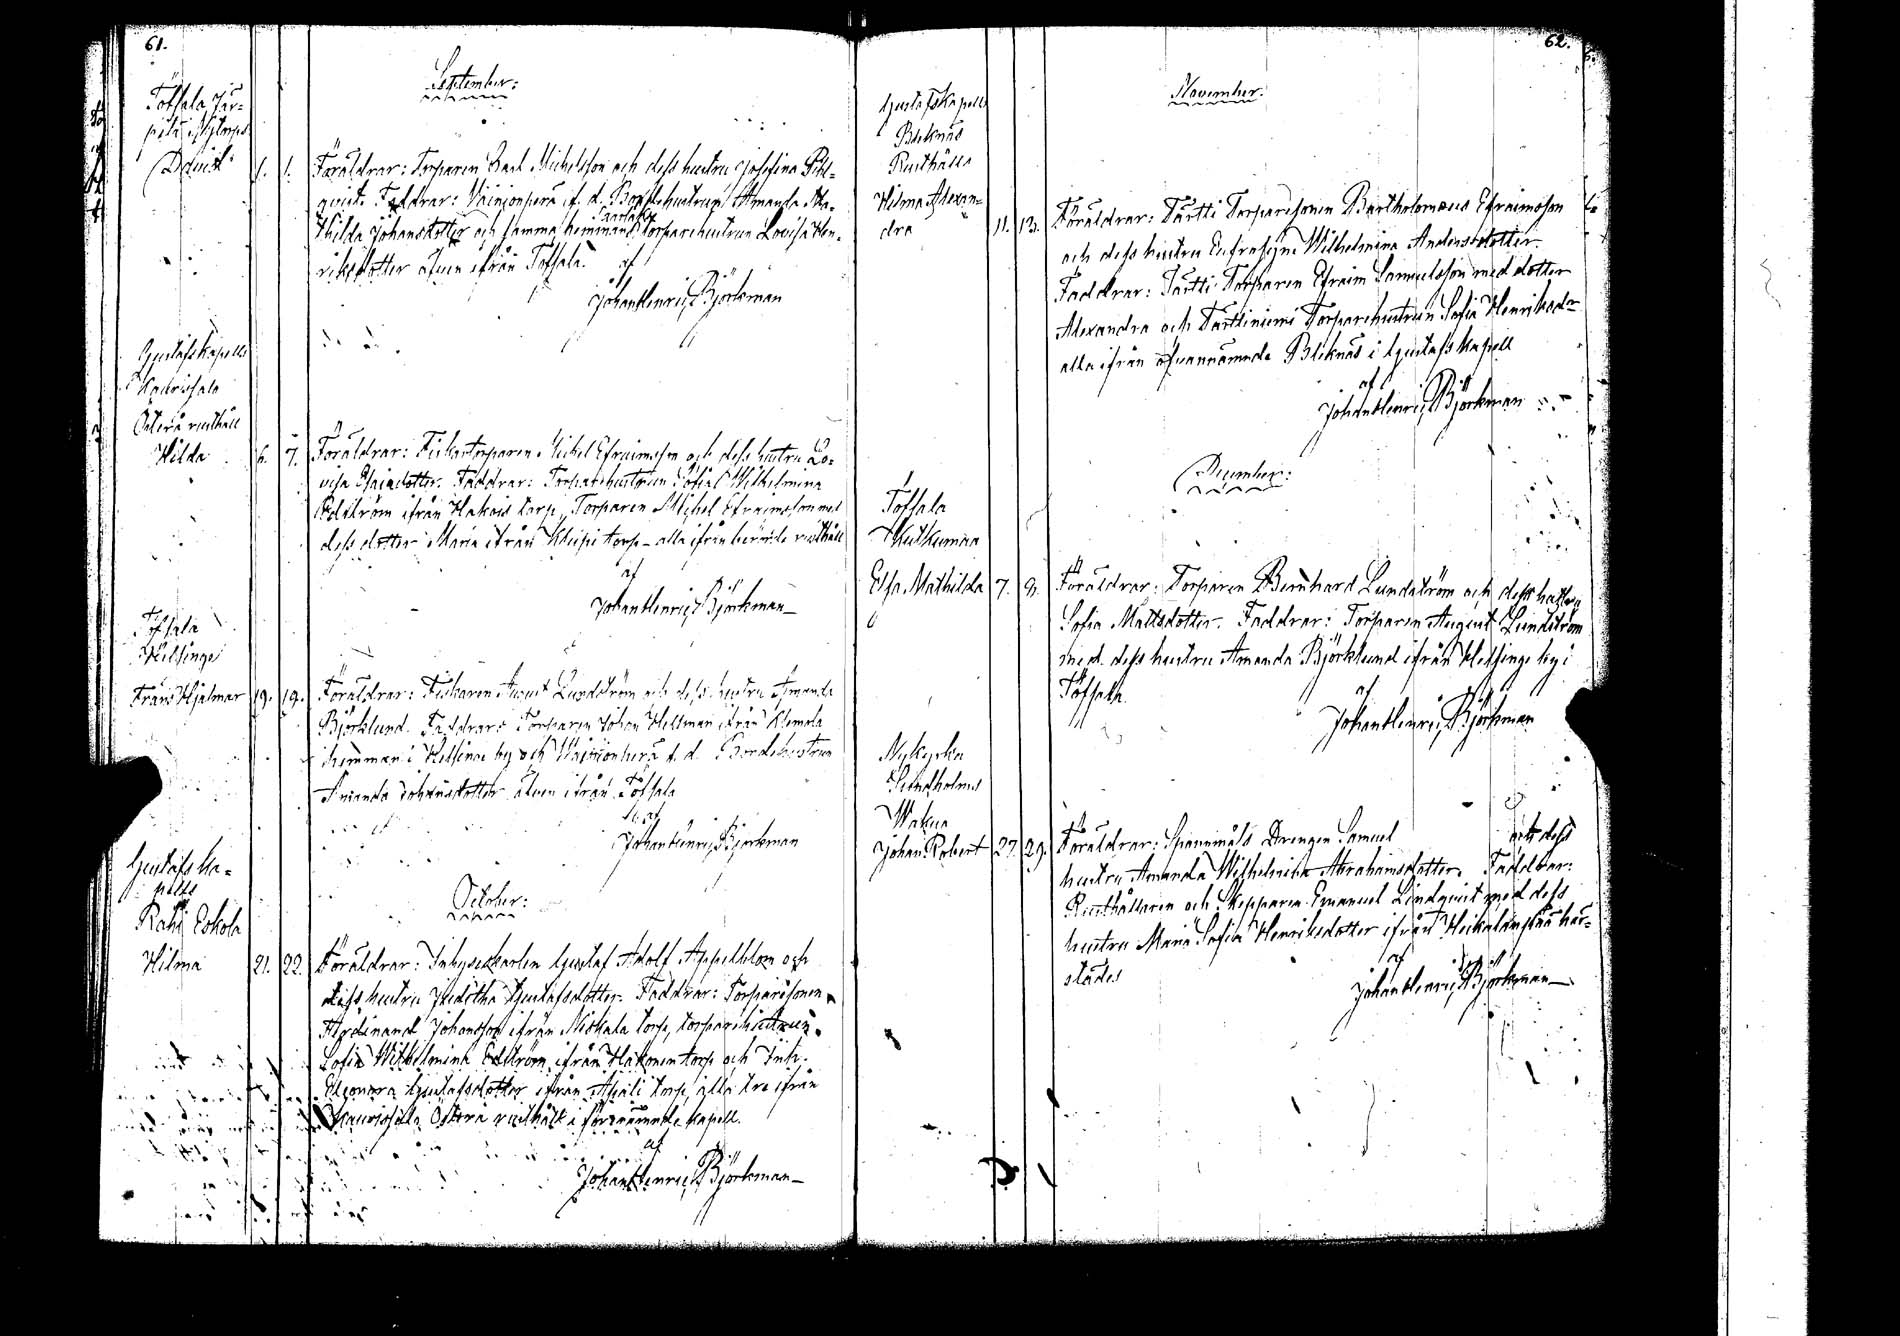 61.
September:
Töfsala Jär-
pilä Nytorps
David 1. 1. Föräldrar: Torparen Michelsson och dess hustru Josefina
qvist. Faddrar: f. d. hustrun Amanda Ma-
thilda Johansdotter och samma hemmans Torparehustrun Lovisa Hen-
riksdotter äfven ifrån Töfsala.
af
Johan Henric Björkman
Gustafs Kapells
Kaurisfala
Österå rusthåll
Hilda 6. 7. Föräldrar: Fiskartorparen Michel Efraimsson och dess hustru Lo-
visa Esaiædotter. Faddrar: Torparehustrun Sofia Wilhelmina
Edström ifrån Hakois torp, Torparen Michel Efraimsson med
dess dotter Maria ifrån torp - alla ifrån berörde rusthåll
af
Johan Henric Björkman
Töfsala
Helsinge
Frans Hjalmar 19. 19. Föräldrar: Fiskaren August Lundström och dess hustru Amanda
Björklund. Faddrar: Torparen Johan Hellman ifrån Klemola
hemman i Helsinge by och f. d. hustrun
Amanda Johansdotter äfven ifrån Töfsala
af
Johan Henric Björkman
October:
Gustafs Ka-
pells
Rahi Eskola
Hilma 21. 22. Föräldrar: Inhysekarlen Gustaf Adolf Appelblom och
dess hustru Juditha Gustafsdotter. Faddrar: Torparesonen
Ferdinand Johansson ifrån Niskala torp, torparehustrun
Sofia Wilhelmina Edström ifrån Hakonen torp och Inh.
Eleonora Gustafsdotter ifrån Apali torp, alla tre ifrån
Kaurisfala Österå rusthåll i förenämnde kapell.
af
Johan Henric Björkman
62.
November:
Gustafs Kapells
Bleknäs
Rusthålls
Hilma Alexan-
dra 11. 13. Föräldrar: Tartti Torparesonen Bartholomæus Efraimsson
och dess hustru Eufrosyne Wilhelmina Andersdotter.
Faddrar: Tartti Torparen Efraim Samuelsson med dotter
Alexandra och Tarttiniemi Torparehustrun Sofia Henriksdr
alla ifrån ofvannämnde Bleknäs i Gustafs Kapell
af
Johan Henric Björkman
December:
Töfsala
Kutkumaa
Elsa Mathilda 7. 9. Föräldrar: Torparen Bernhard Lundström och dess hustru
Sofia Mattsdotter. Faddrar: Torparen August Lundström
med dess hustru Amanda Björklund ifrån Helsinge by i
Töfsala.
af
Johan Henric Björkman
Nykyrka
Sundholms
Wakua
Johan Robert 27. 29. Föräldrar: Spannmåls Drengen Samuel och dess
hustru Amanda Wilhelmina Abrahamsdotter. Faddrar:
Rusthållaren och Skepparen Emanuel Lindqvist med dess
hustru Maria Sofia Henriksdotter ifrån här-
städes
af
Johan Henric Björkman